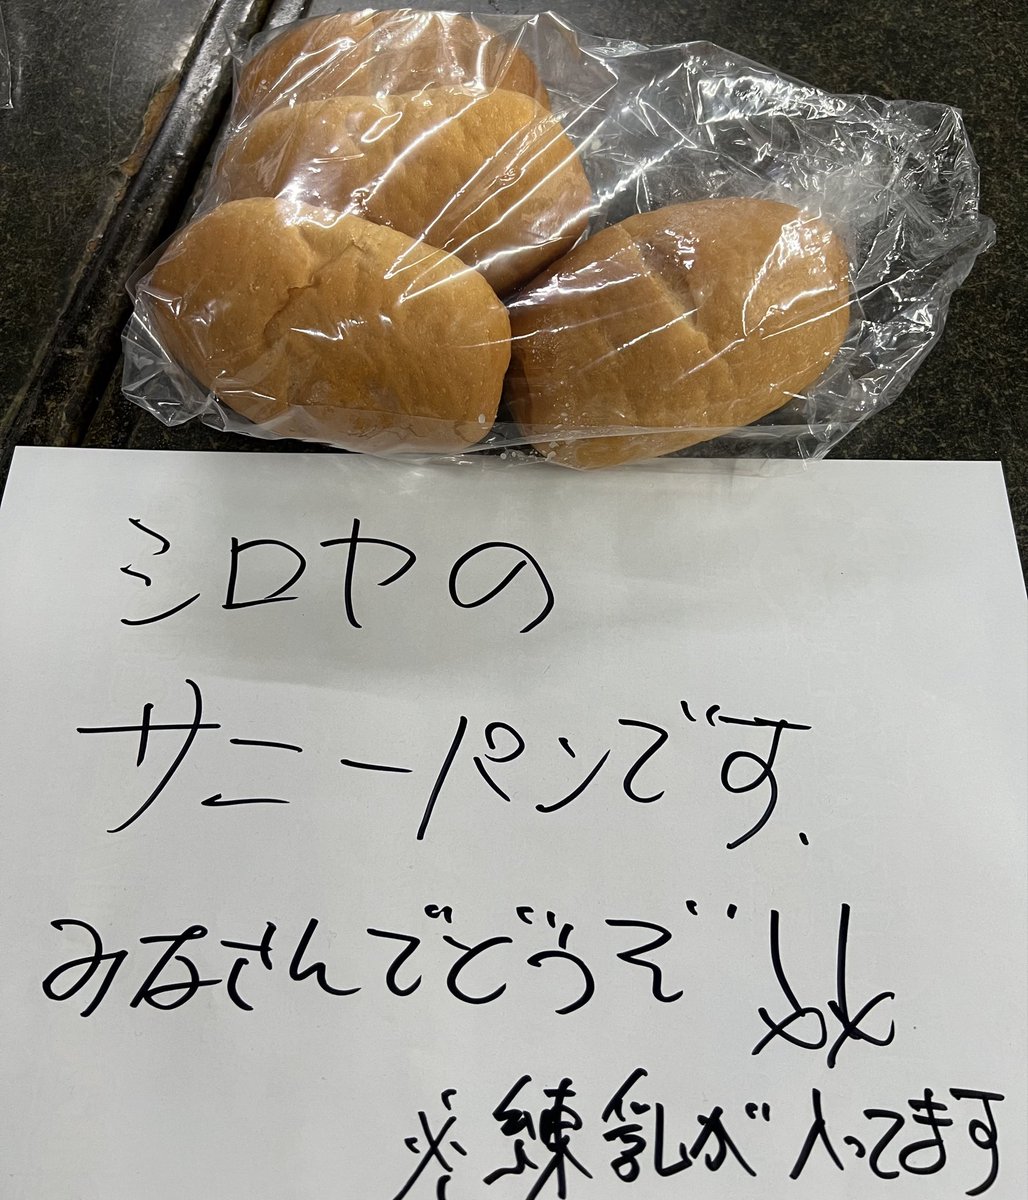 シロヤの
サニーパンです.
みなさんでどうぞ!!
※練乳が入ってます